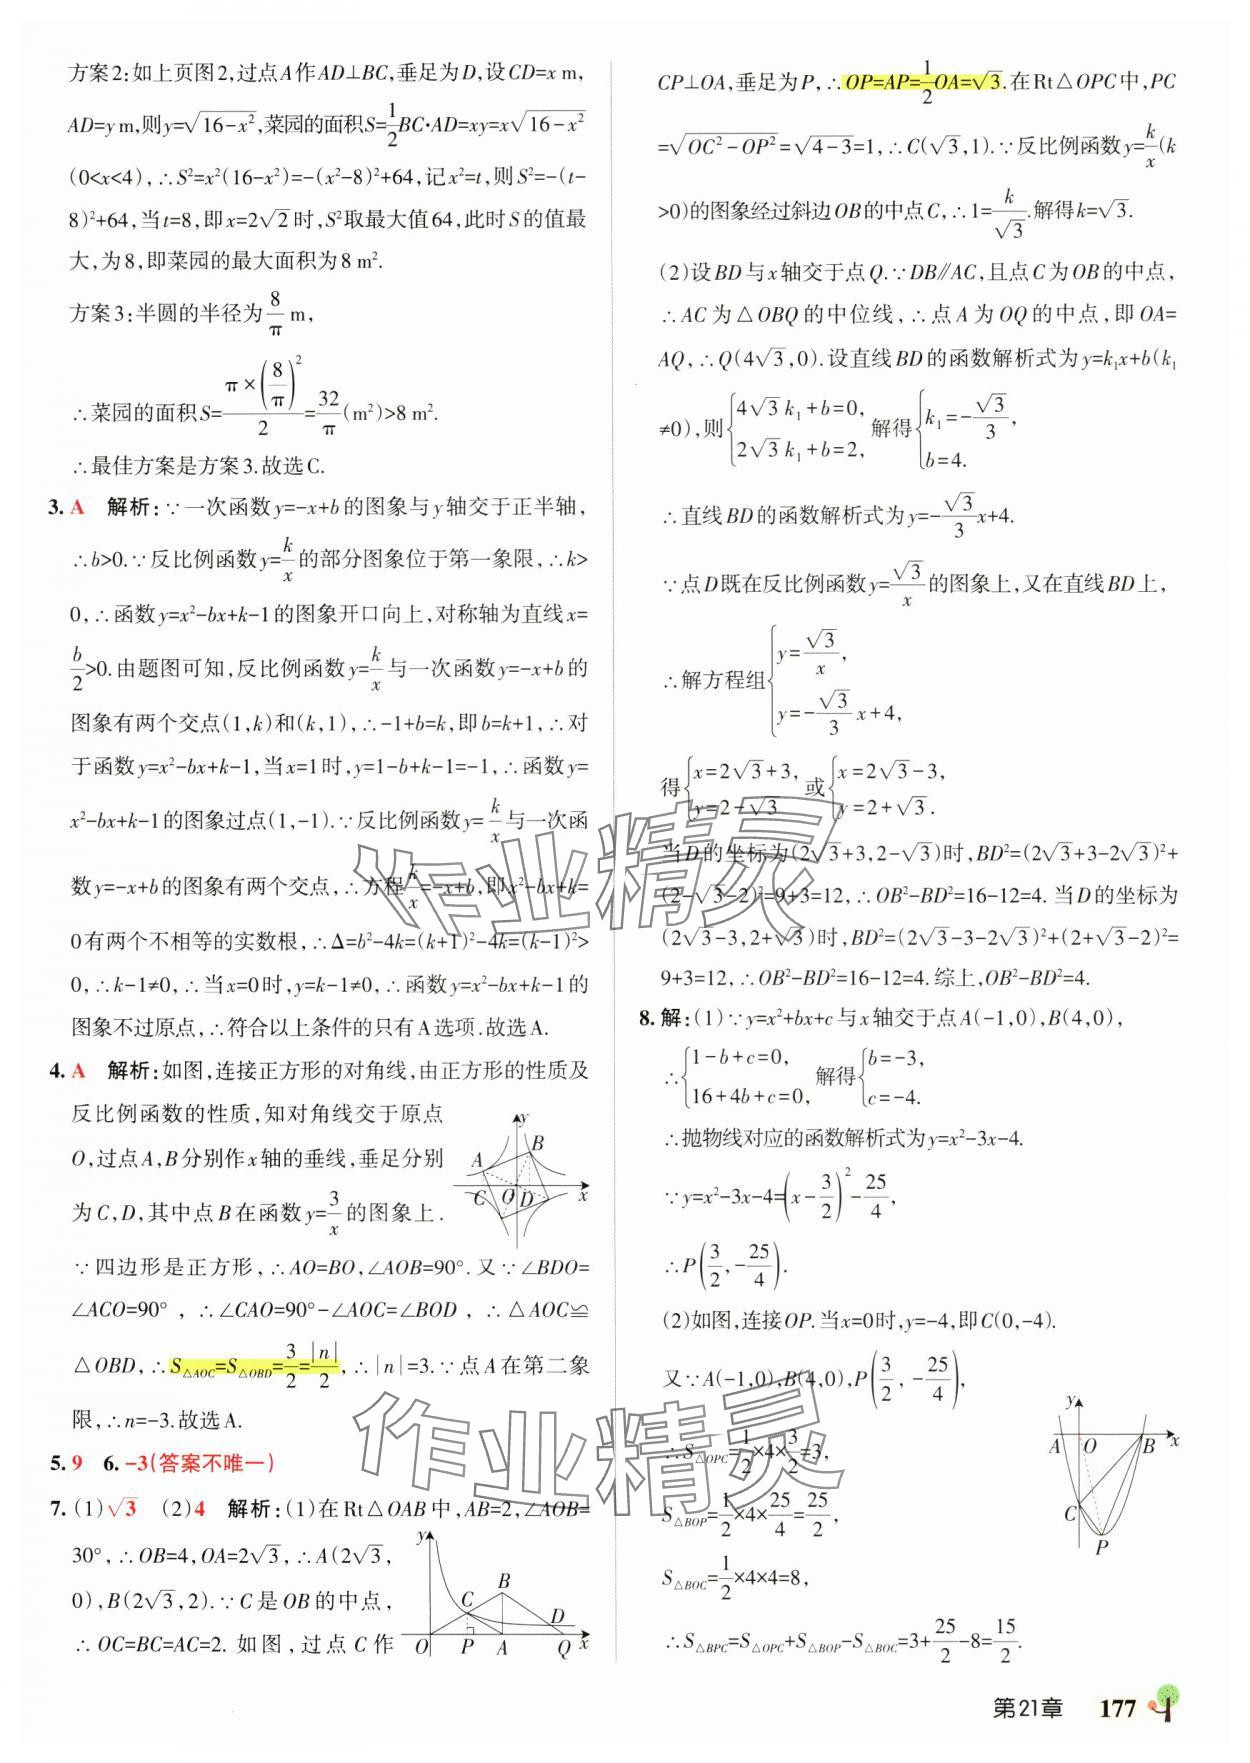 方案2:如上页图2,过点A作AD⊥BC,垂足为D,设CD=x m,
AD=y m,则y=√(16-x²),菜园的面积S=1/2 BC·AD=xy=x√(16-x²)
(0<x<4),∴S²=x²(16-x²)=-(x²-8)²+64,记x²=t,则S²=-(t-
8)²+64,当t=8,即x=2√2时,S²取最大值64,此时S的值最
大,为8,即菜园的最大面积为8 m².
方案3:半圆的半径为8/π m,
∴菜园的面积S=(π×(8/π)²)/2=32/π(m²)>8 m².
∴最佳方案是方案3.故选C.
3. A 解析:∵一次函数y=-x+b的图象与y轴交于正半轴,
∴b>0.∵反比例函数y=k/x的部分图象位于第一象限,∴k>
0,∴函数y=x²-bx+k-1的图象开口向上,对称轴为直线x=
b/2>0.由题图可知,反比例函数y=k/x与一次函数y=-x+b的
图象有两个交点(1,k)和(k,1),∴-1+b=k,即b=k+1,∴对
于函数y=x²-bx+k-1,当x=1时,y=1-b+k-1=-1,∴函数y=
x²-bx+k-1的图象过点(1,-1).∵反比例函数y=k/x与一次函
数y=-x+b的图象有两个交点,∴方程k/x=-x+b,即x²-bx+k=
0有两个不相等的实数根,∴Δ=b²-4k=(k+1)²-4k=(k-1)²>
0,∴k-1≠0,∴当x=0时,y=k-1≠0,∴函数y=x²-bx+k-1的
图象不过原点,∴符合以上条件的只有A选项.故选A.
4. A 解析:如图,连接正方形的对角线,由正方形的性质及
反比例函数的性质,知对角线交于原点
O,过点A,B分别作x轴的垂线,垂足分别
为C,D,其中点B在函数y=3/x的图象上.
y
A
B
C
O
D
x
∵四边形是正方形,∴AO=BO,∠AOB=90°.又∵∠BDO=
∠ACO=90°,∴∠CAO=90°-∠AOC=∠BOD,∴△AOC≌
△OBD,∴S△AOC=S△OBD=3/2=|n|/2,∴|n|=3.∵点A在第二象
限,∴n=-3.故选A.
5. 9 6. -3(答案不唯一)
7. (1)√3 (2)4 解析:(1)在Rt△OAB中,AB=2,∠AOB=
30°,∴OB=4,OA=2√3,∴A(2√3,
0),B(2√3,2).∵C是OB的中点,
∴OC=BC=AC=2.如图,过点C作
y
B
C
D
O
P
A
Q
x
CP⊥OA,垂足为P,∴OP=AP=1/2 OA=√3.在Rt△OPC中,PC
=√(OC²-OP²)=√(4-3)=1,∴C(√3,1).∵反比例函数y=k/x(k
>0)的图象经过斜边OB的中点C,∴1=k/√3.解得k=√3.
(2)设BD与x轴交于点Q.∵DB∥AC,且点C为OB的中点,
∴AC为△OBQ的中位线,∴点A为OQ的中点,即OA=
AQ,∴Q(4√3,0).设直线BD的函数解析式为y=k₁x+b(k₁
≠0),则{4√3 k₁+b=0, 2√3 k₁+b=2, 解得{k₁=-√3/3, b=4.
∴直线BD的函数解析式为y=-√3/3 x+4.
∵点D既在反比例函数y=√3/x的图象上,又在直线BD上,
∴解方程组{y=√3/x, y=-√3/3 x+4,
得{x=2√3+3, y=2-√3 或{x=2√3-3, y=2+√3.
当D的坐标为(2√3+3,2-√3)时,BD²=(2√3+3-2√3)²+
(2-√3-2)²=9+3=12,∴OB²-BD²=16-12=4.当D的坐标为
(2√3-3,2+√3)时,BD²=(2√3-3-2√3)²+(2+√3-2)²=
9+3=12,∴OB²-BD²=16-12=4.综上,OB²-BD²=4.
8. 解:(1)∵y=x²+bx+c与x轴交于点A(-1,0),B(4,0),
∴{1-b+c=0, 16+4b+c=0, 解得{b=-3, c=-4.
∴抛物线对应的函数解析式为y=x²-3x-4.
∵y=x²-3x-4=(x-3/2)²-25/4,
∴P(3/2,-25/4).
(2)如图,连接OP.当x=0时,y=-4,即C(0,-4).
又∵A(-1,0),B(4,0),P(3/2,-25/4),
∴S△OPC=1/2×4×3/2=3,
S△BOP=1/2×4×25/4=25/2,
S△BOC=1/2×4×4=8,
∴S△BPC=S△OPC+S△BOP-S△BOC=3+25/2-8=15/2.
y
A
O
B
x
C
P
作业精灵
作业精灵
第21章 177